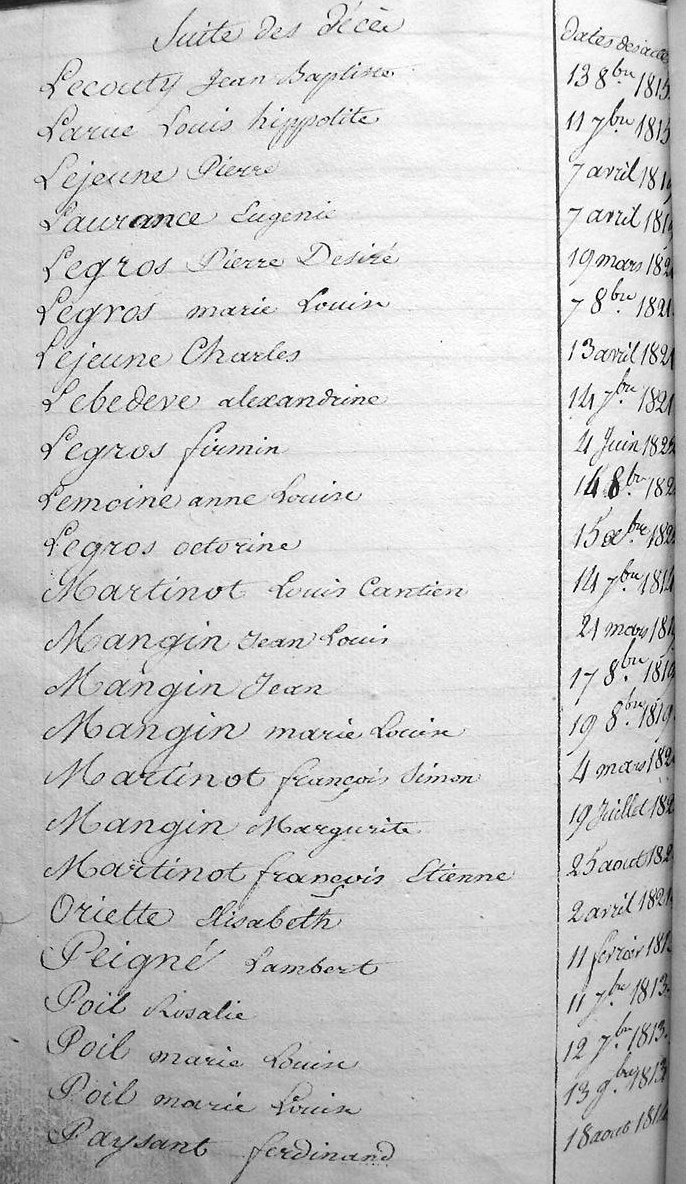 Suite des décès dates des actes
Lecouty Jean Baptiste 13 8bre 1815
Larue Louis hippolite 11 7bre 1815
Lejeune Pierre 7 avril
Laurance Eugenie 7 avril
Legros Pierre Desiré 19 mars
Legros marie Louise 7 8bre 1821
Lejeune Charles 13 avril 1821
Lebedeve alexandrine 14 7bre 1821
Legros firmin 4 Juin
Lemoine anne Louise 14 8bre
Legros octorine 15 xbre
Martinot Louis Cantien 14 7bre
Mangin Jean Louis 21 mars
Mangin Jean 17 8bre 1819
Mangin marie Louise 19 8bre 1819
Martinot françois Simon 4 mars
Mangin Margurite 19 Juillet
Martinot françois Etienne 25 aout
Oriette Elisabeth 2 avril 1821
Peigné Lambert 11 fevrier
Poil Rosalie 11 7bre 1813
Poil marie Louise 12 7bre 1813
Poil marie Louise 13 9bre 1813
Paysant ferdinand 18 aout 1814